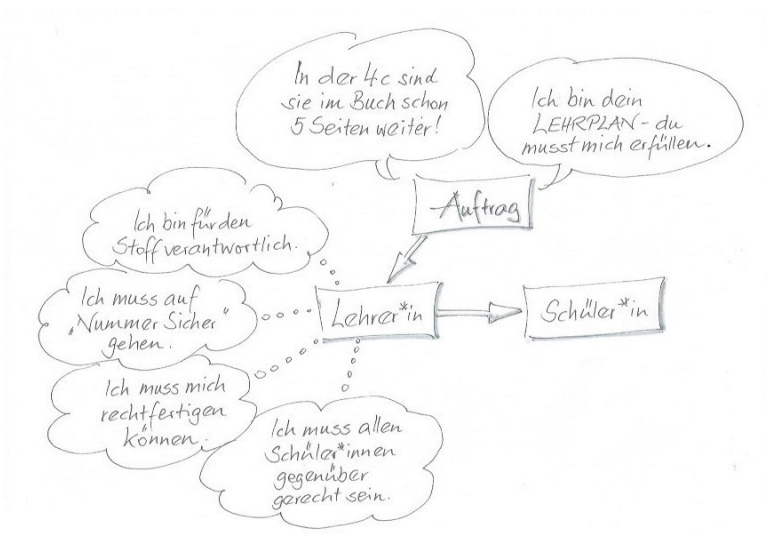 In der 4c sind
sie im Buch schon
5 Seiten weiter!
Ich bin dein
LEHRPLAN - du
musst mich erfüllen.
Auftrag
Ich bin für den
Stoff verantwortlich.
Ich muss auf
„Nummer Sicher“
gehen.
Lehrer*in
Schüler*in
Ich muss mich
rechtfertigen
können.
Ich muss allen
Schüler*innen
gegenüber
gerecht sein.